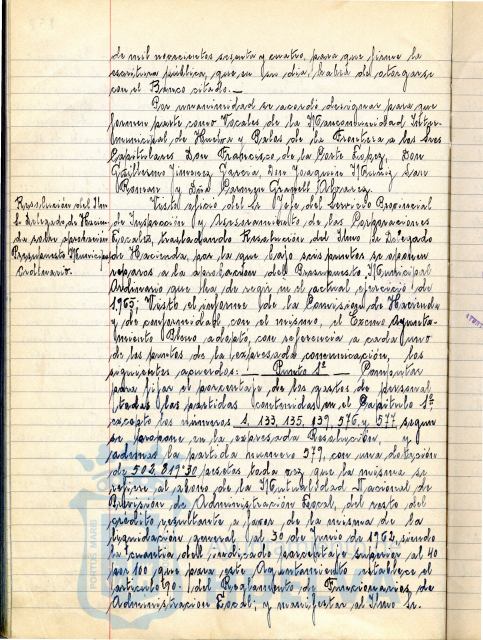 de mil novecientos sesenta y cuatro, para que firme la
escritura pública, que en su dia, habrá del otorgarse
con el Banco citado.—
Por unanimidad se acordó designar para que
formen parte como Vocales de la Mancomunidad Inter-
municipal de Huelva y Palos de la Frontera a los Sres
Capitulares Don Francisco de la Corte López, Don
Guillermo Jimenez Garcia, Don Joaquin Muñiz San
Roman y Dña Carmen Alvarez.
Resolución del Ilmo
S. Delegado de Hacien-
da sobre aprobación
Presupuesto Municipal
Ordinario.
Visto oficio del Sr Jefe del Servicio Provincial
de Inspección y Asesoramiento de las Corporaciones
Locales, trasladando Resolución del Ilmo Sr Delegado
de Hacienda, por la que bajo seis puntos se oponen
reparos a la aprobación del Presupuesto Municipal
Ordinario que ha de regir en el actual ejercicio de
1965; Visto el informe de la Comisión de Hacienda
y de conformidad con el mismo, el Excmo Ayunta-
miento Pleno adoptó, con referencia a cada uno
de los puntos de la expresada comunicación, los
siguientes acuerdos: Punto 1º — Computar
para fijar el porcentaje de los gastos de personal
todas las partidas contenidas en el Capítulo 1º,
excepto los números 1, 133, 135, 139, 576 y 577 segun
se propone en la expresada Resolución, y
además la partida número 579, con una dotación
de 502.819'30 pesetas toda vez que la misma se
refiere al abono de la Mutualidad Nacional de
Previsión de Administración Local, del resto del
credito resultante a favor de la misma de la
liquidación general al 30 de Junio de 1962, siendo
la cuantia del indicado porcentaje superior al 40
por 100 que para este Ayuntamiento establece el
articulo 90 del Reglamento de Funcionarios de
Administración Local, y manifestar al Ilmo Sr.
PORTUS MARIS